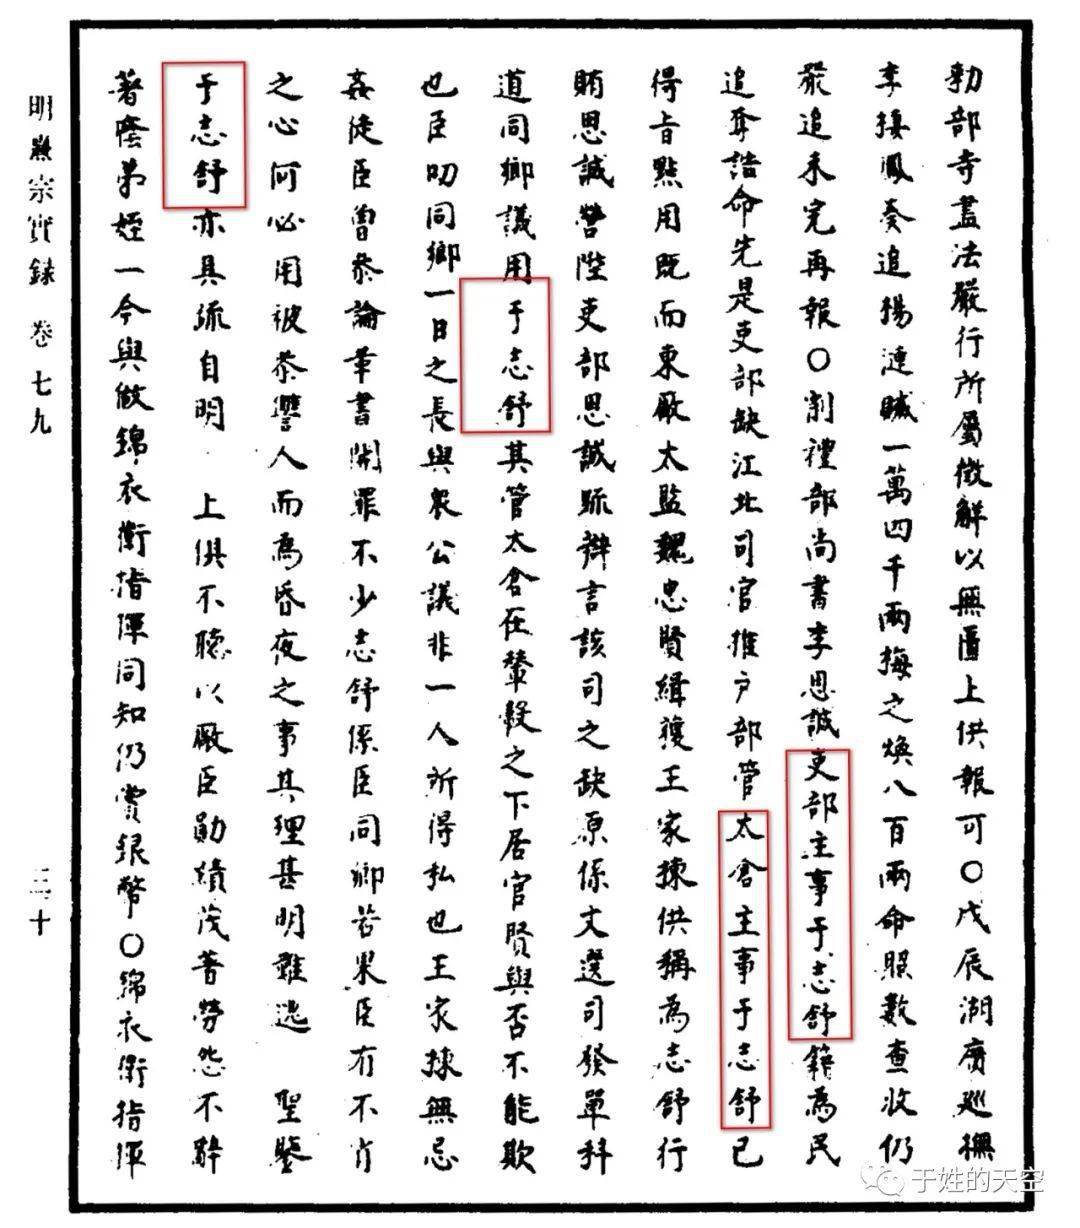 勑部寺盡法嚴行所屬徵解以無匱上供報可〇戊辰湖廣巡撫
李捿鳳奏追楊漣贓一萬四千兩梅之煥八百兩命照數查收仍
嚴追未完再報〇削禮部尚書李思誠吏部主事于志舒籍為民
追奪誥命先是吏部缺江北司官推户部管太倉主事于志舒已
得旨點用既而東厰太監魏忠賢緝獲王家揀供稱為志舒行
賄思誠營陞吏部思誠疏辯言該司之缺原係文選司發單科
道同鄉議用于志舒其管太倉在輦轂之下居官賢與否不能欺
也臣叨同鄉一日之長與衆公議非一人所得私也王家揀無忌
姦徒臣曾叅論革書開罪不少志舒係臣同鄉若果臣有不肖
之心何必用被叅讐人而為昏夜之事其理甚明難逃 聖鑒
于志舒亦具疏自明 上俱不聽以厰臣勛績茂著勞怨不辭
著廕弟姪一今與做錦衣衛指揮同知仍賞銀幣〇錦衣衛指揮
明熹宗實錄 卷七九
三十
于姓的天空